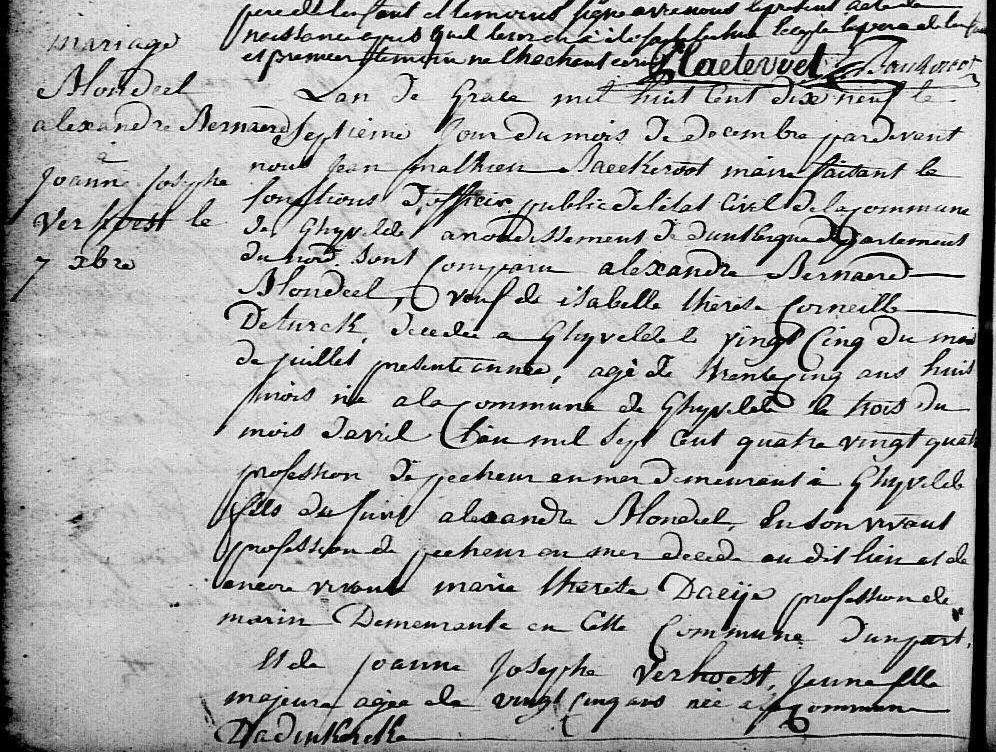 mariage
Blondeel
alexandre Bernaerd
à
joanne josephe
Verhoest le
7 xbre
pere de l'enfant et temoins signe avec nous le present acte de
naissance apres quel leur en a été fait lecture
et premier temoin
L'an de Grace mil huit Cent dix neuf le
septieme jour du mois de decembre pardevant
nous jean mathieu Baeckeroot maire faisant le
fonctions d'officier public de l'etat Civil de la commune
de Ghyvelde arrondissement de dunkerque departement
du nord sont comparu alexandre Bernaerd
Blondeel, veuf de isabelle therese Corneille
Deturck, decedée a Ghyvelde le vingt Cinq du mois
de juillet presente année, agé de trente cinq ans huit
mois né a la Commune de Ghyvelde le trois du
mois d'avril l'an mil sept cent quatre vingt quatre
profession de pecheur en mer demeurant à Ghyvelde
fils du fut alexandre Blondeel, En son vivant
profession de pecheur en mer decede au dit lieu et de
encore vivant marie therese Daeije profession de
marin Demeurante en Cette Commune d'un part,
Et de joanne josephe verhoest, jeune fille
majeure agée de vingt cinq ans née a commune
Dadinkerke